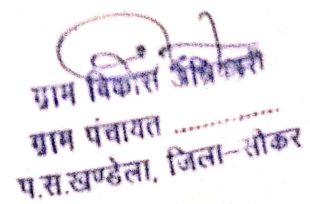 ग्राम विकास अधिकारी
ग्राम पंचायत ..................
पं.स.खण्डेला, जिला-सीकर